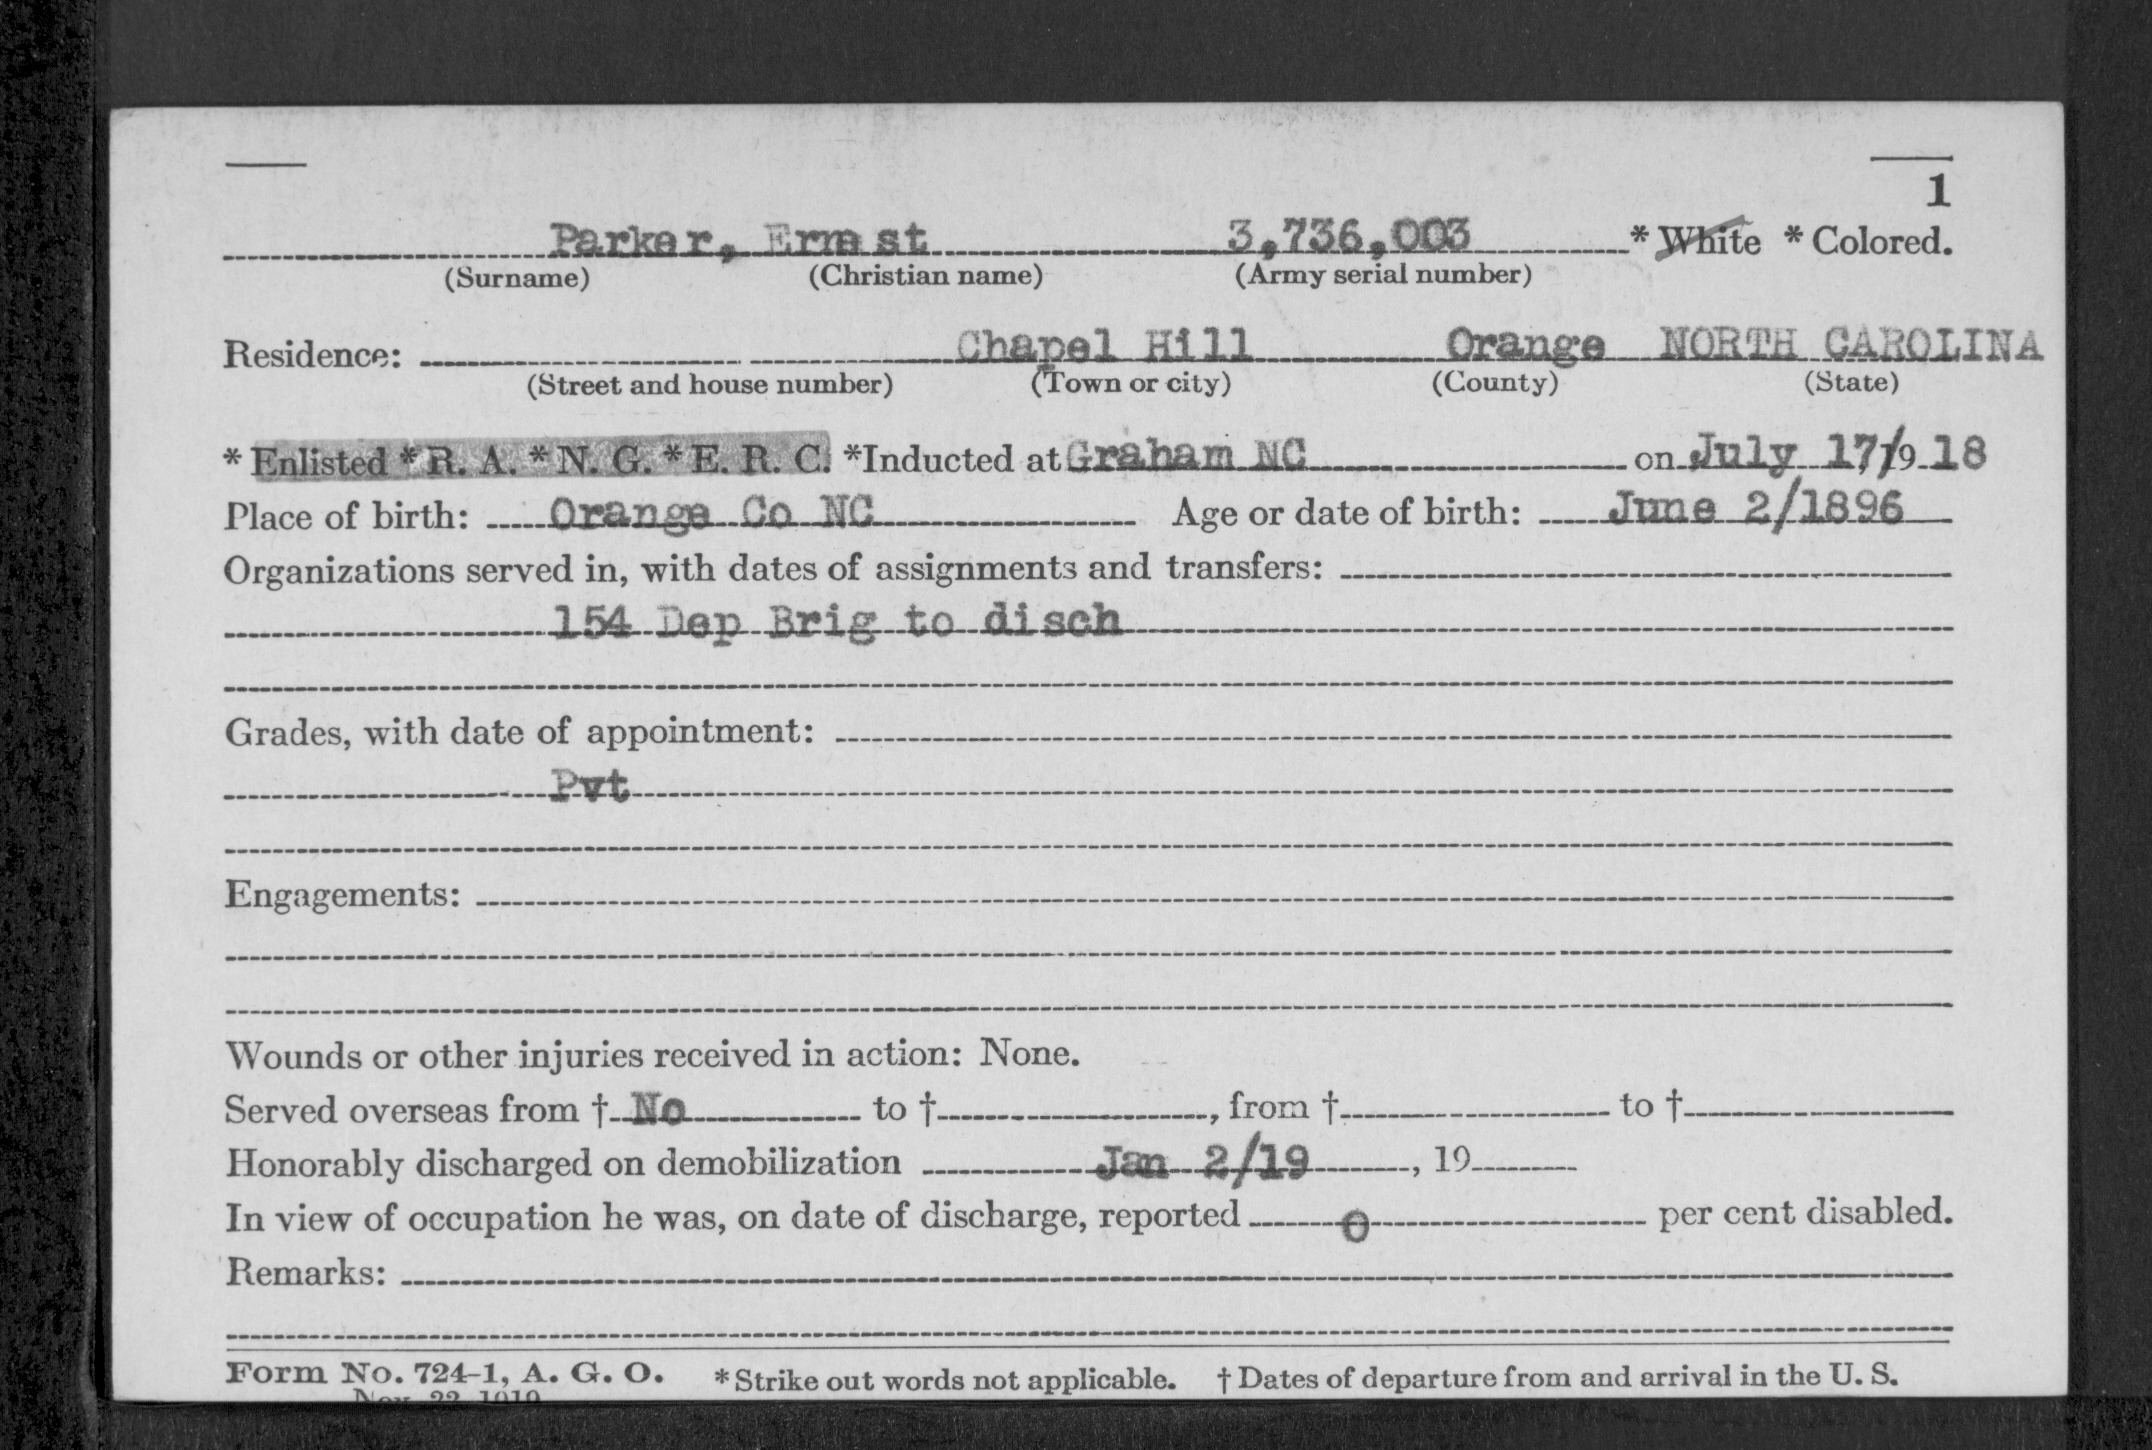 1
Parker, Ernest 3,736,003 * White * Colored.
(Surname) (Christian name) (Army serial number)
Residence: Chapel Hill Orange NORTH CAROLINA
(Street and house number) (Town or city) (County) (State)
* Enlisted * R. A. * N. G. * E. R. C. *Inducted at Graham NC on July 17/, 19 18
Place of birth: Orange Co NC Age or date of birth: June 2/1896
Organizations served in, with dates of assignments and transfers:
154 Dep Brig to disch
Grades, with date of appointment:
Pvt
Engagements:
Wounds or other injuries received in action: None.
Served overseas from † No to † , from † to †
Honorably discharged on demobilization Jan 2/19 , 19
In view of occupation he was, on date of discharge, reported 0 per cent disabled.
Remarks:
Form No. 724-1, A. G. O. * Strike out words not applicable. † Dates of departure from and arrival in the U. S.
Nov. 22, 1919